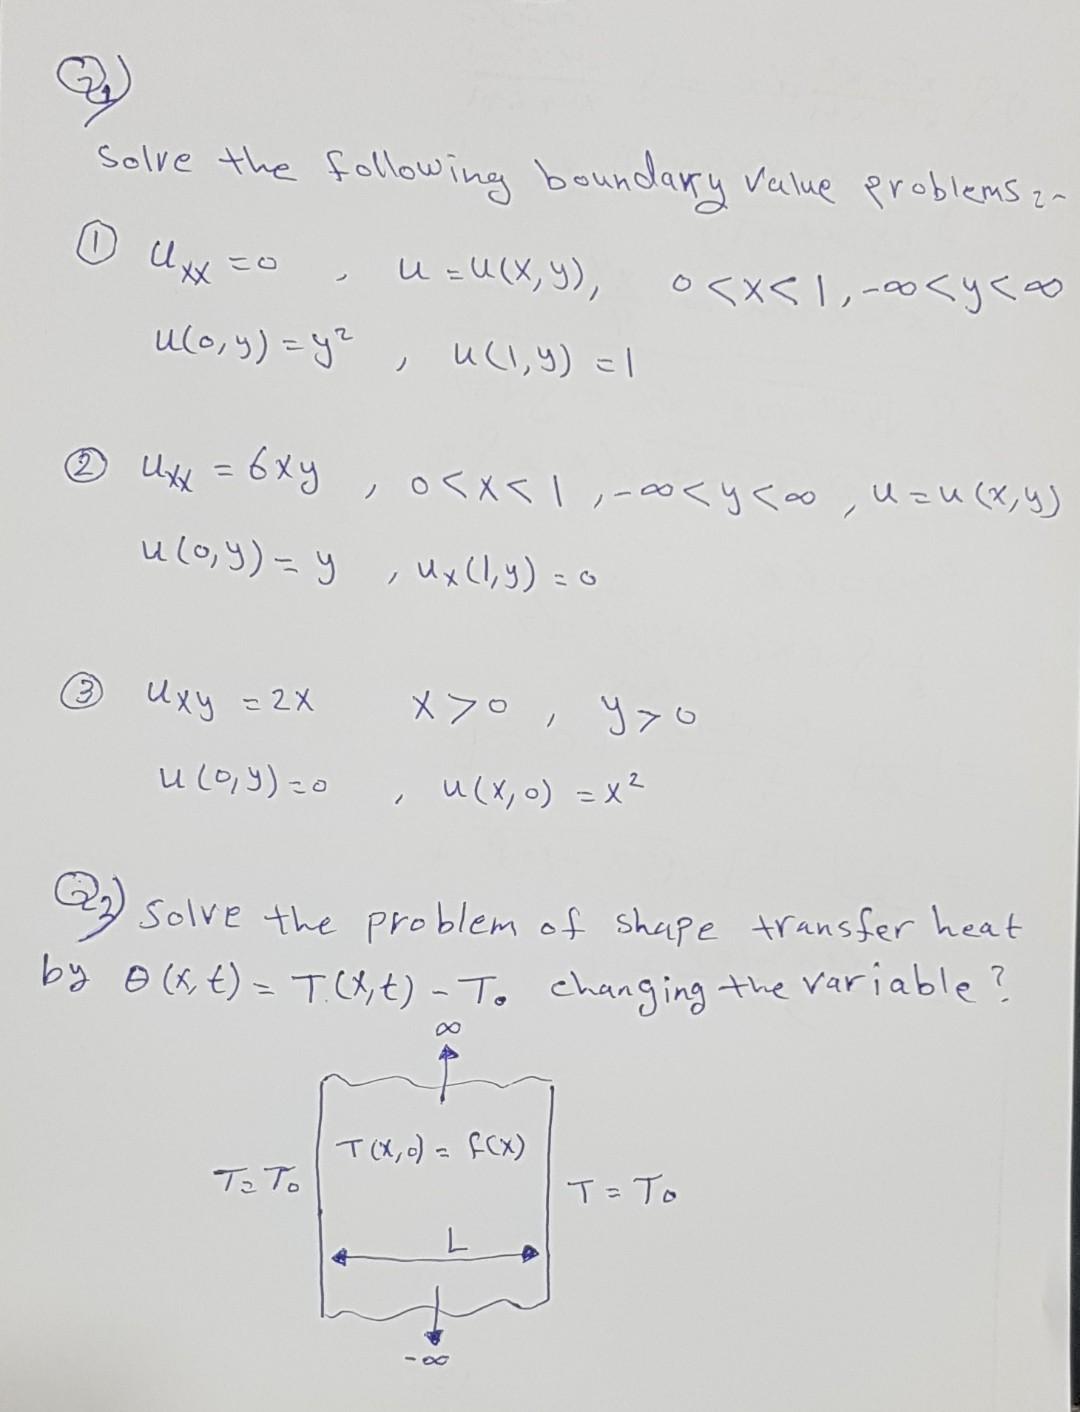 Q1)
Solve the following boundary value problems:-
① uxx = 0 , u = u(x,y), 0<x<1, -∞<y<∞
u(0,y) = y² , u(1,y) = 1
② uxx = 6xy , 0<x<1, -∞<y<∞, u=u(x,y)
u(0,y) = y , ux(1,y) = 0
③ uxy = 2x x>0 , y>0
u(0,y)=0 , u(x,0) = x²
Q2) Solve the problem of shape transfer heat
by θ(x,t) = T(x,t) - T₀ changing the variable?
∞
T(x,0) = f(x)
T=T₀
T = T₀
L
-∞